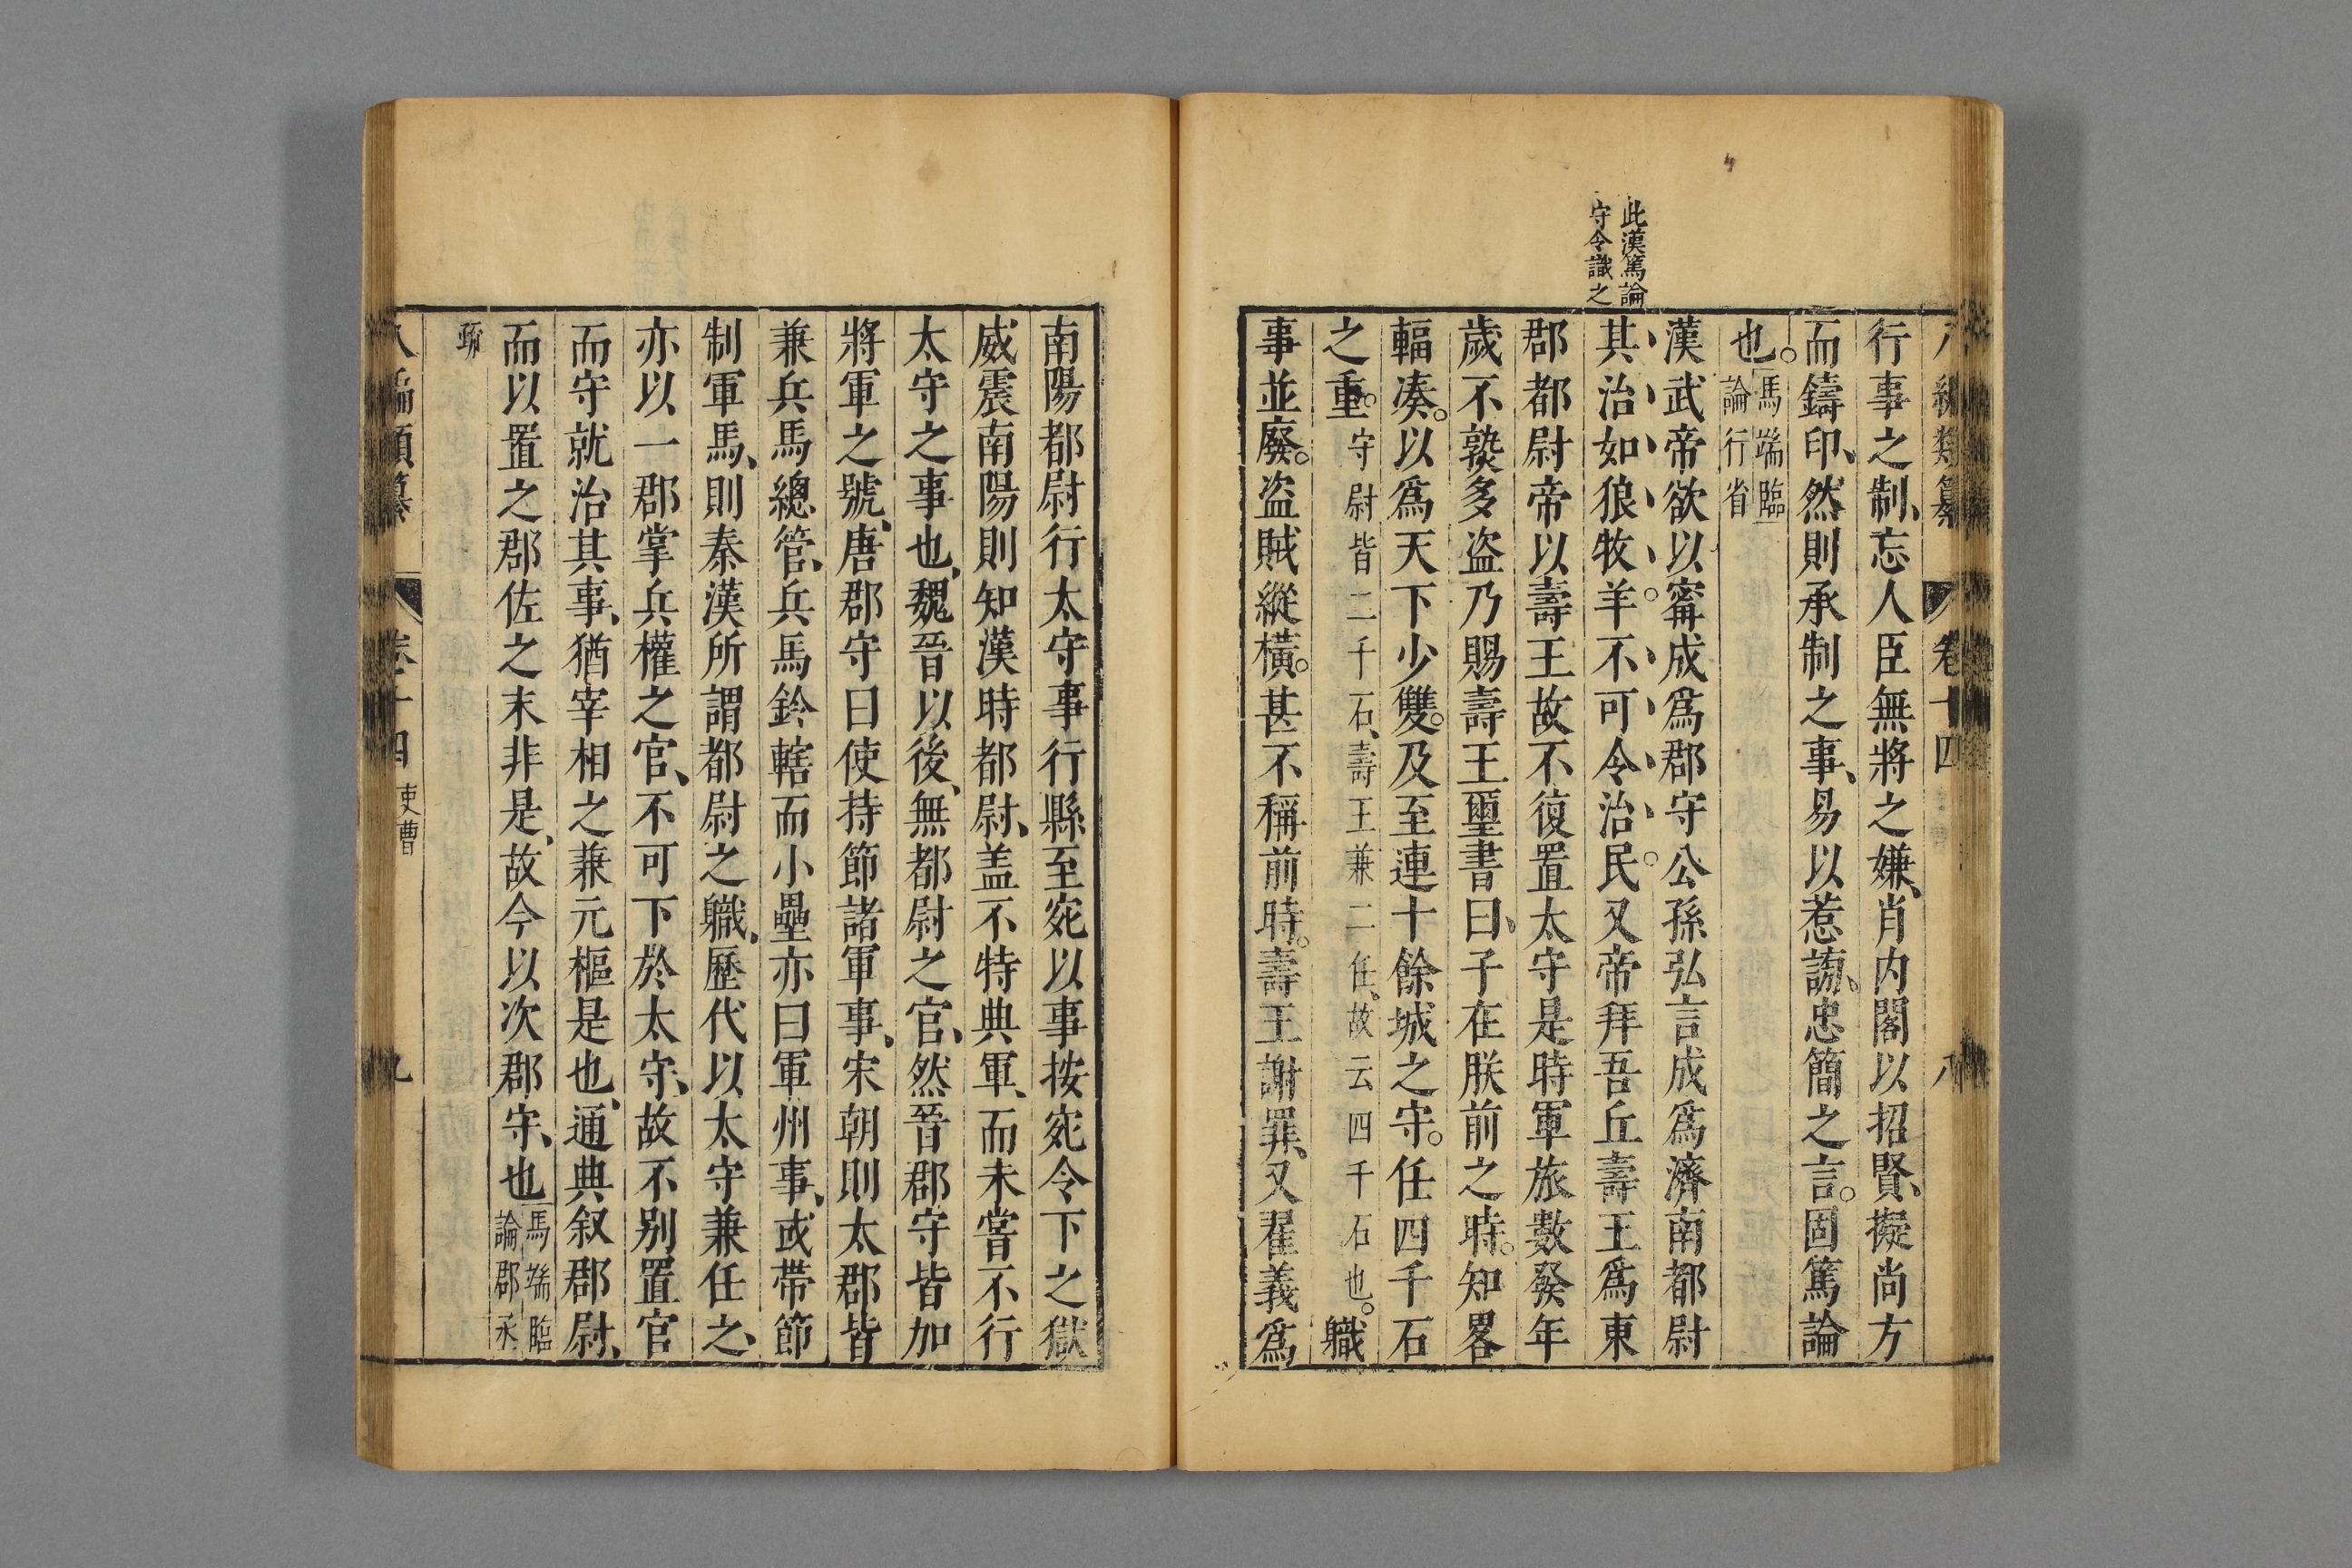 八編類纂 卷十四 八
此漢篤論
守令識之
行事之制、忘人臣無將之嫌、肖内閣以招賢、擬尚方
而鑄印、然則承制之事、易以惹謗、忠簡之言。固篤論
也。馬端臨論行省
漢武帝欲以甯成爲郡守公孫弘言成爲濟南都尉
其治如狼牧羊。不可令治民。又帝拜吾丘壽王爲東
郡都尉帝以壽王故不復置太守是時軍旅數發年
歲不熟多盗乃賜壽王璽書曰、子在朕前之時。知畧
輻凑。以爲天下少雙。及至連十餘城之守。任四千石
之重。守尉皆二千石、壽王兼二任、故云四千石也。職
事並廢。盗賊縱横。甚不稱前時。壽王謝罪、又翟義爲
南陽都尉行太守事行縣至宛以事按宛令下之獄
威震南陽則知漢時都尉、盖不特典軍、而未嘗不行
太守之事也、魏晉以後、無都尉之官、然晉郡守皆加
將軍之號、唐郡守曰使持節諸軍事、宋朝則太郡皆
兼兵馬總管、兵馬鈐轄而小壘亦曰軍州事、或帶節
制軍馬、則秦漢所謂都尉之職、歷代以太守兼任之、
亦以一郡掌兵權之官、不可下於太守、故不别置官
而守就治其事、猶宰相之兼元樞是也、通典叙郡尉、
而以置之郡佐之末非是、故今以次郡守、也馬端臨論郡丞
八編類纂 卷十四 吏曹 九